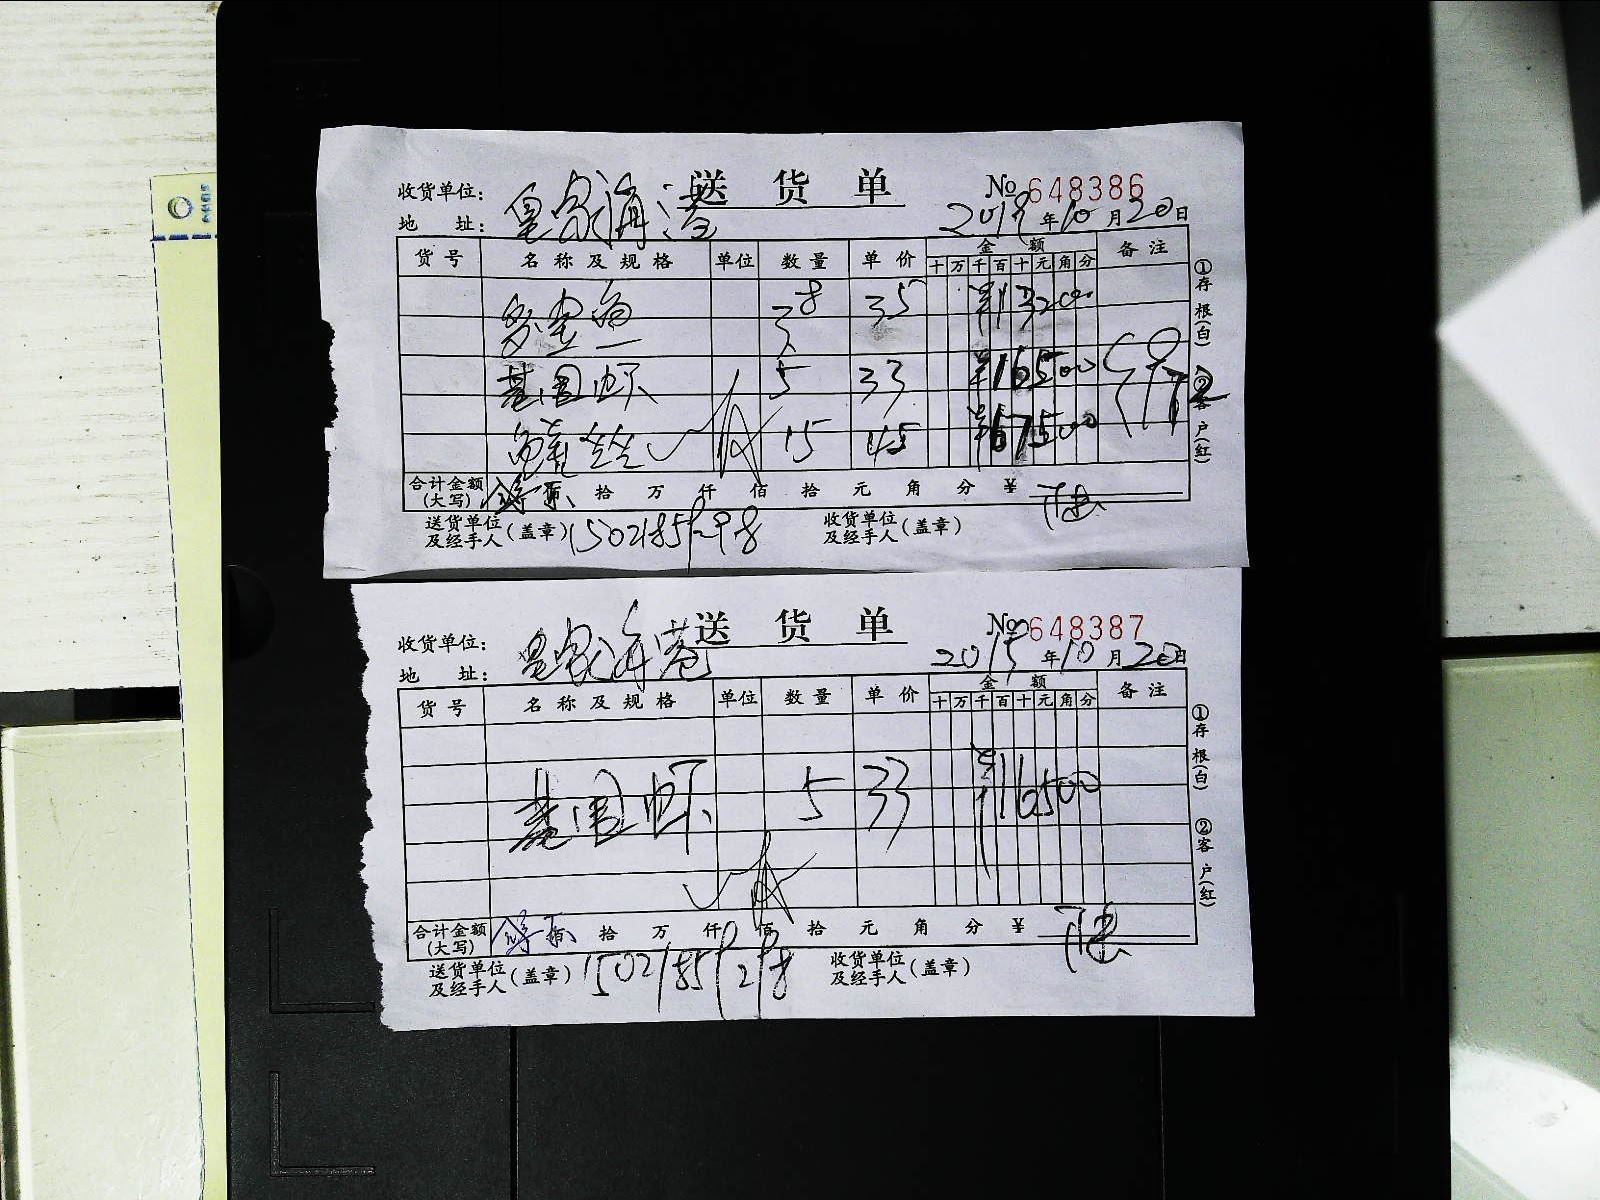 送 货 单
No 648386
收货单位:
地 址: 皇家海港
2019年10月20日
货号 名称及规格 单位 数量 单价 金额 备注
十 万 千 百 十 元 角 分
多宝鱼 38 35 ¥13200
基围虾 5 33 ¥16500
15 45 ¥67500
972
合计金额(大写) 佰 拾 万 仟 佰 拾 元 角 分 ¥
送货单位及经手人(盖章)
收货单位及经手人(盖章)
①存根(白) ②客户(红)
送 货 单
No 648387
收货单位:
地 址: 皇家海港
2019年10月20日
货号 名称及规格 单位 数量 单价 金额 备注
十 万 千 百 十 元 角 分
基围虾 5 33 ¥16500
合计金额(大写) 佰 拾 万 仟 佰 拾 元 角 分 ¥
送货单位及经手人(盖章)
收货单位及经手人(盖章)
①存根(白) ②客户(红)